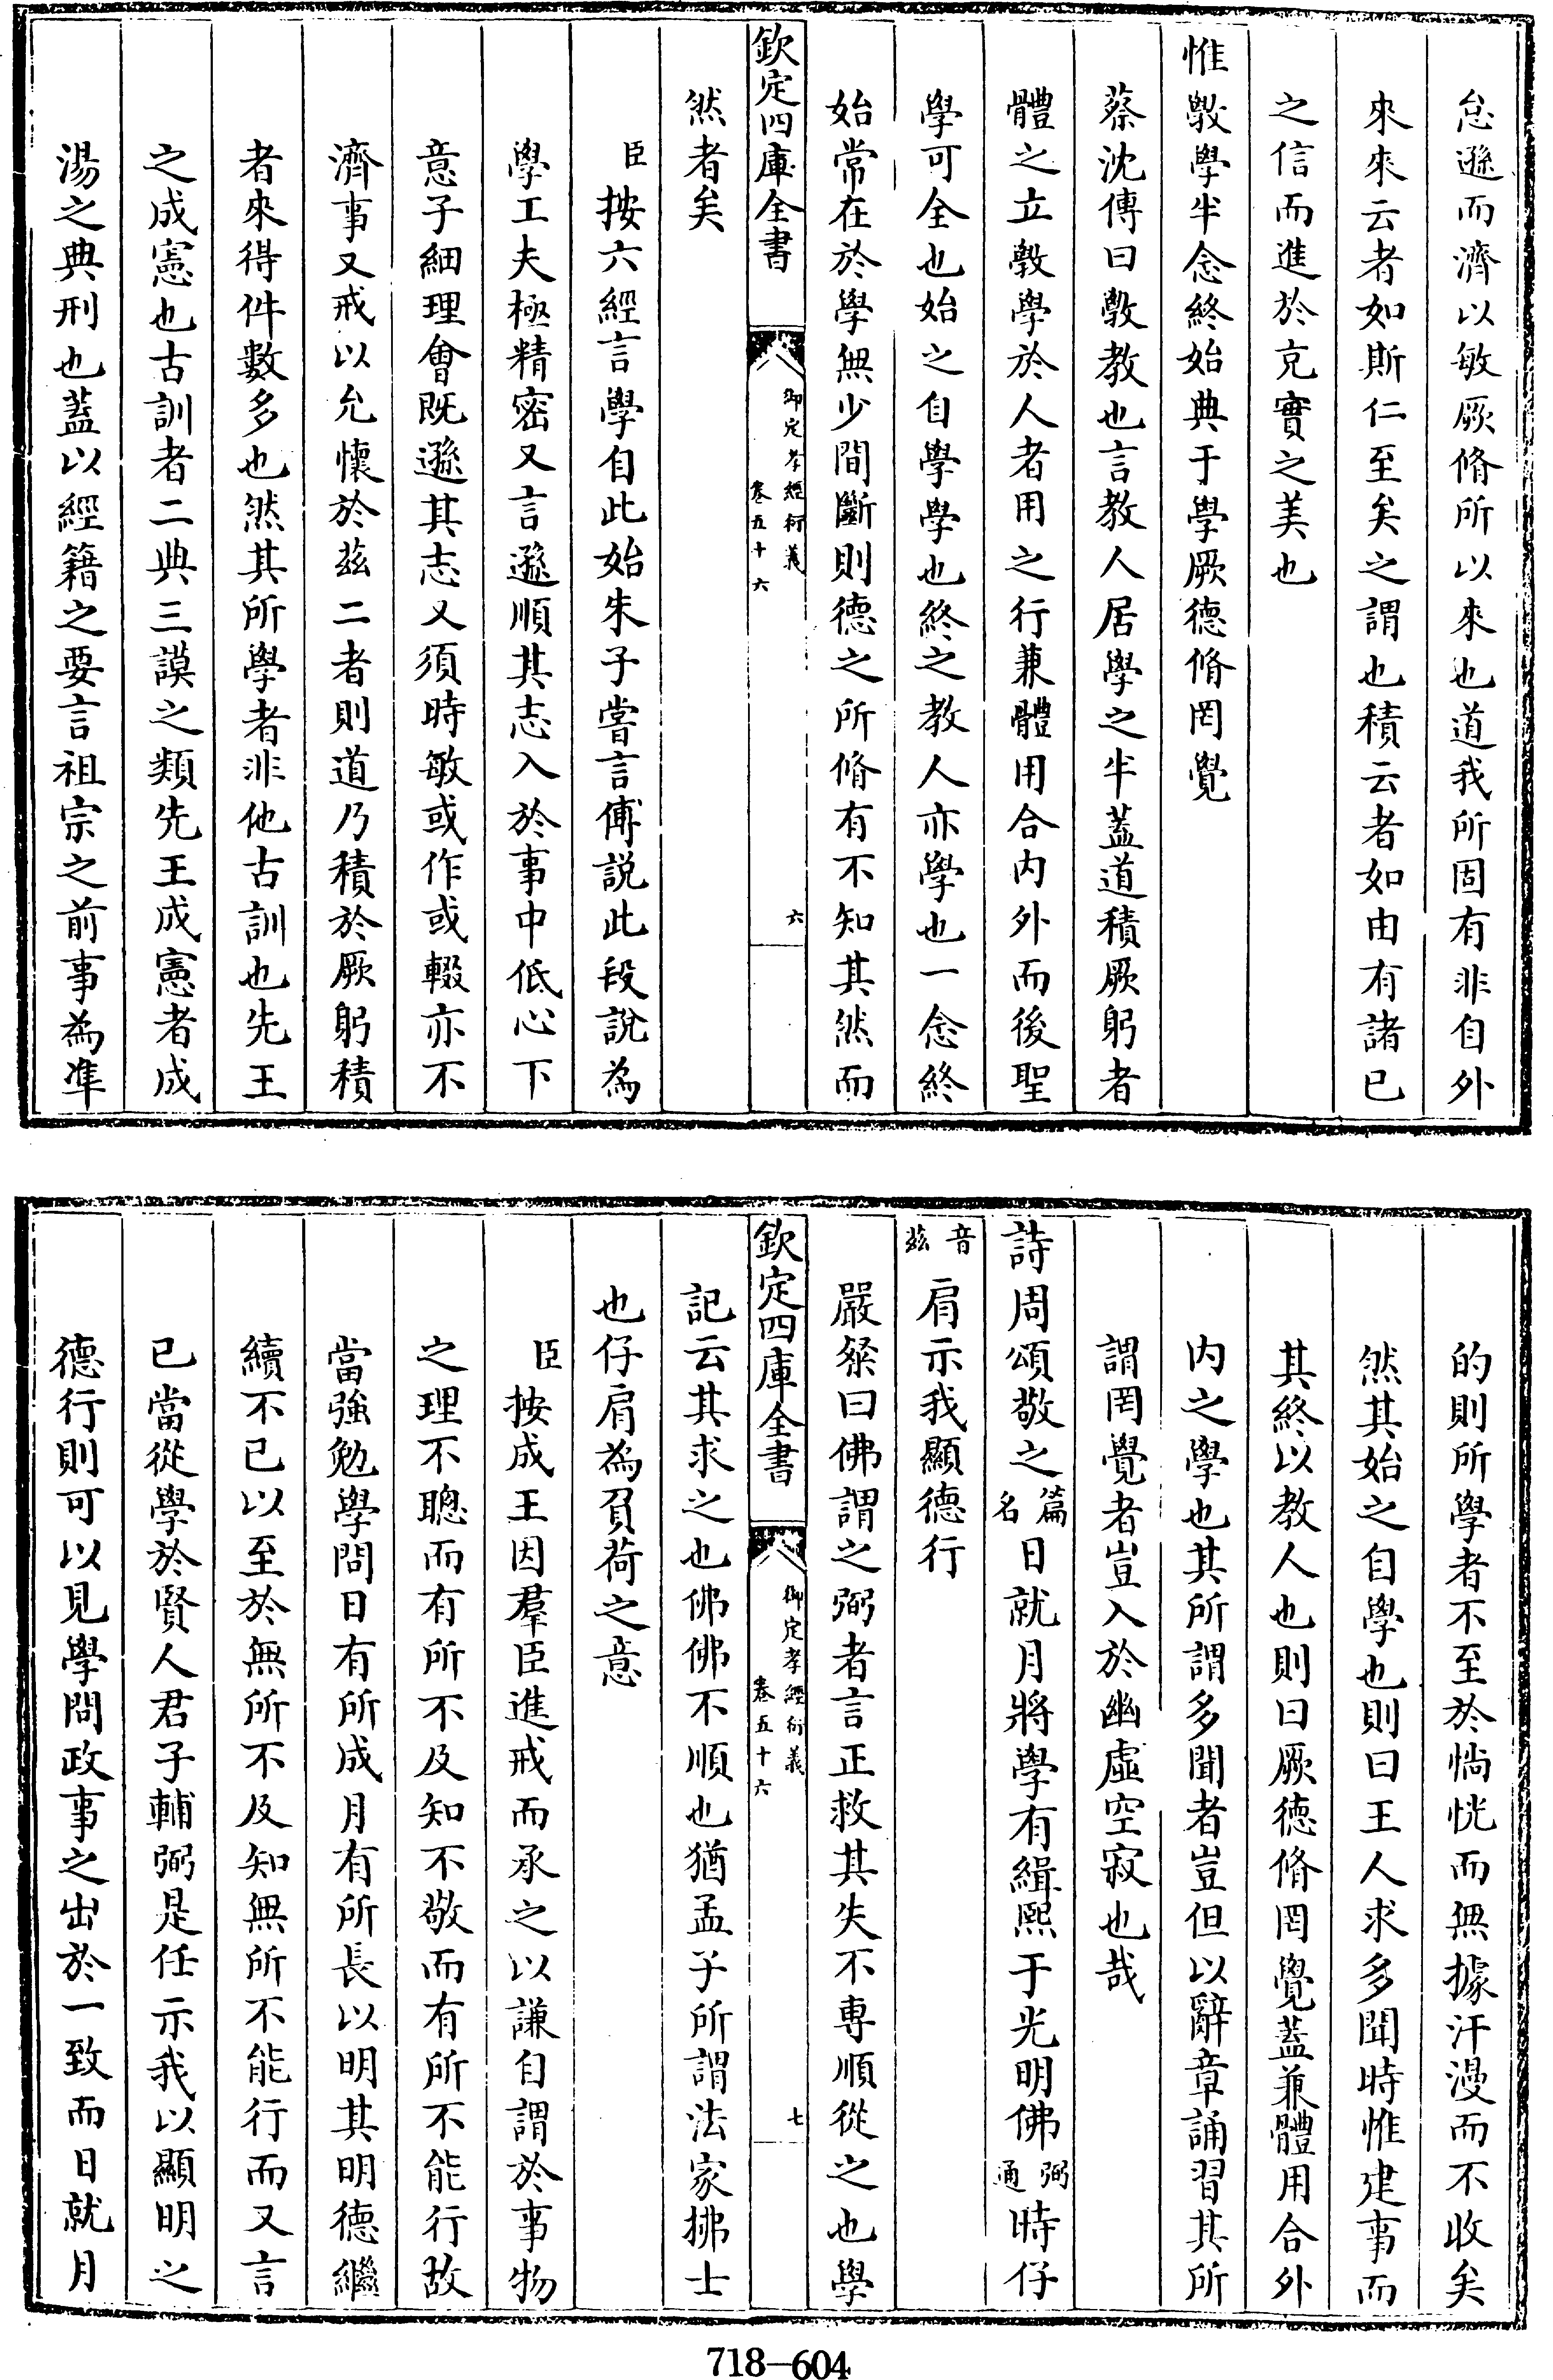 怠遜而濟以敏厥脩所以來也道我所固有非自外
來來云者如斯仁至矣之謂也積云者如由有諸已
之信而進於克實之美也
惟斆學半念終始典于學厥德脩罔覺
蔡沈傳曰斆教也言教人居學之半蓋道積厥躬者
體之立斆學於人者用之行兼體用合内外而後聖
學可全也始之自學學也終之教人亦學也一念終
始常在於學無少間斷則德之所脩有不知其然而
然者矣
臣按六經言學自此始朱子嘗言傅説此段說為
學工夫極精密又言遜順其志入於事中低心下
意子細理會既遜其志又須時敏或作或輟亦不
濟事又戒以允懷於兹二者則道乃積於厥躬積
者來得件數多也然其所學者非他古訓也先王
之成憲也古訓者二典三謨之類先王成憲者成
湯之典刑也蓋以經籍之要言祖宗之前事為準
欽定四庫全書
御定孝經衍義
卷五十六
六
的則所學者不至於惝恍而無據汗漫而不收矣
然其始之自學也則曰王人求多聞時惟建事而
其終以教人也則曰厥德脩罔覺蓋兼體用合外
内之學也其所謂多聞者豈但以辭章誦習其所
謂罔覺者豈入於幽虛空寂也哉
詩周頌敬之篇名日就月將學有緝熙于光明佛弼通時仔
音兹肩示我顯德行
嚴粲曰佛謂之弼者言正救其失不專順從之也學
記云其求之也佛佛不順也猶孟子所謂法家拂士
也仔肩為負荷之意
臣按成王因羣臣進戒而承之以謙自謂於事物
之理不聰而有所不及知不敬而有所不能行故
當強勉學問日有所成月有所長以明其明德繼
續不已以至於無所不及知無所不能行而又言
已當從學於賢人君子輔弼是任示我以顯明之
德行則可以見學問政事之出於一致而日就月
欽定四庫全書
御定孝經衍義
卷五十六
七
718-604